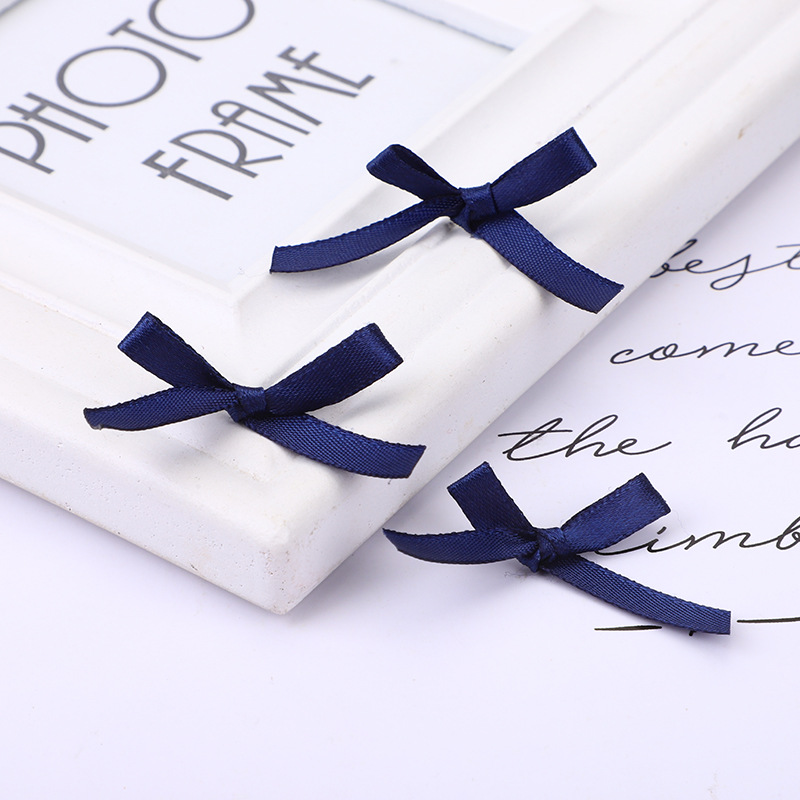 PHOTO
FRAME
best
come
the ha